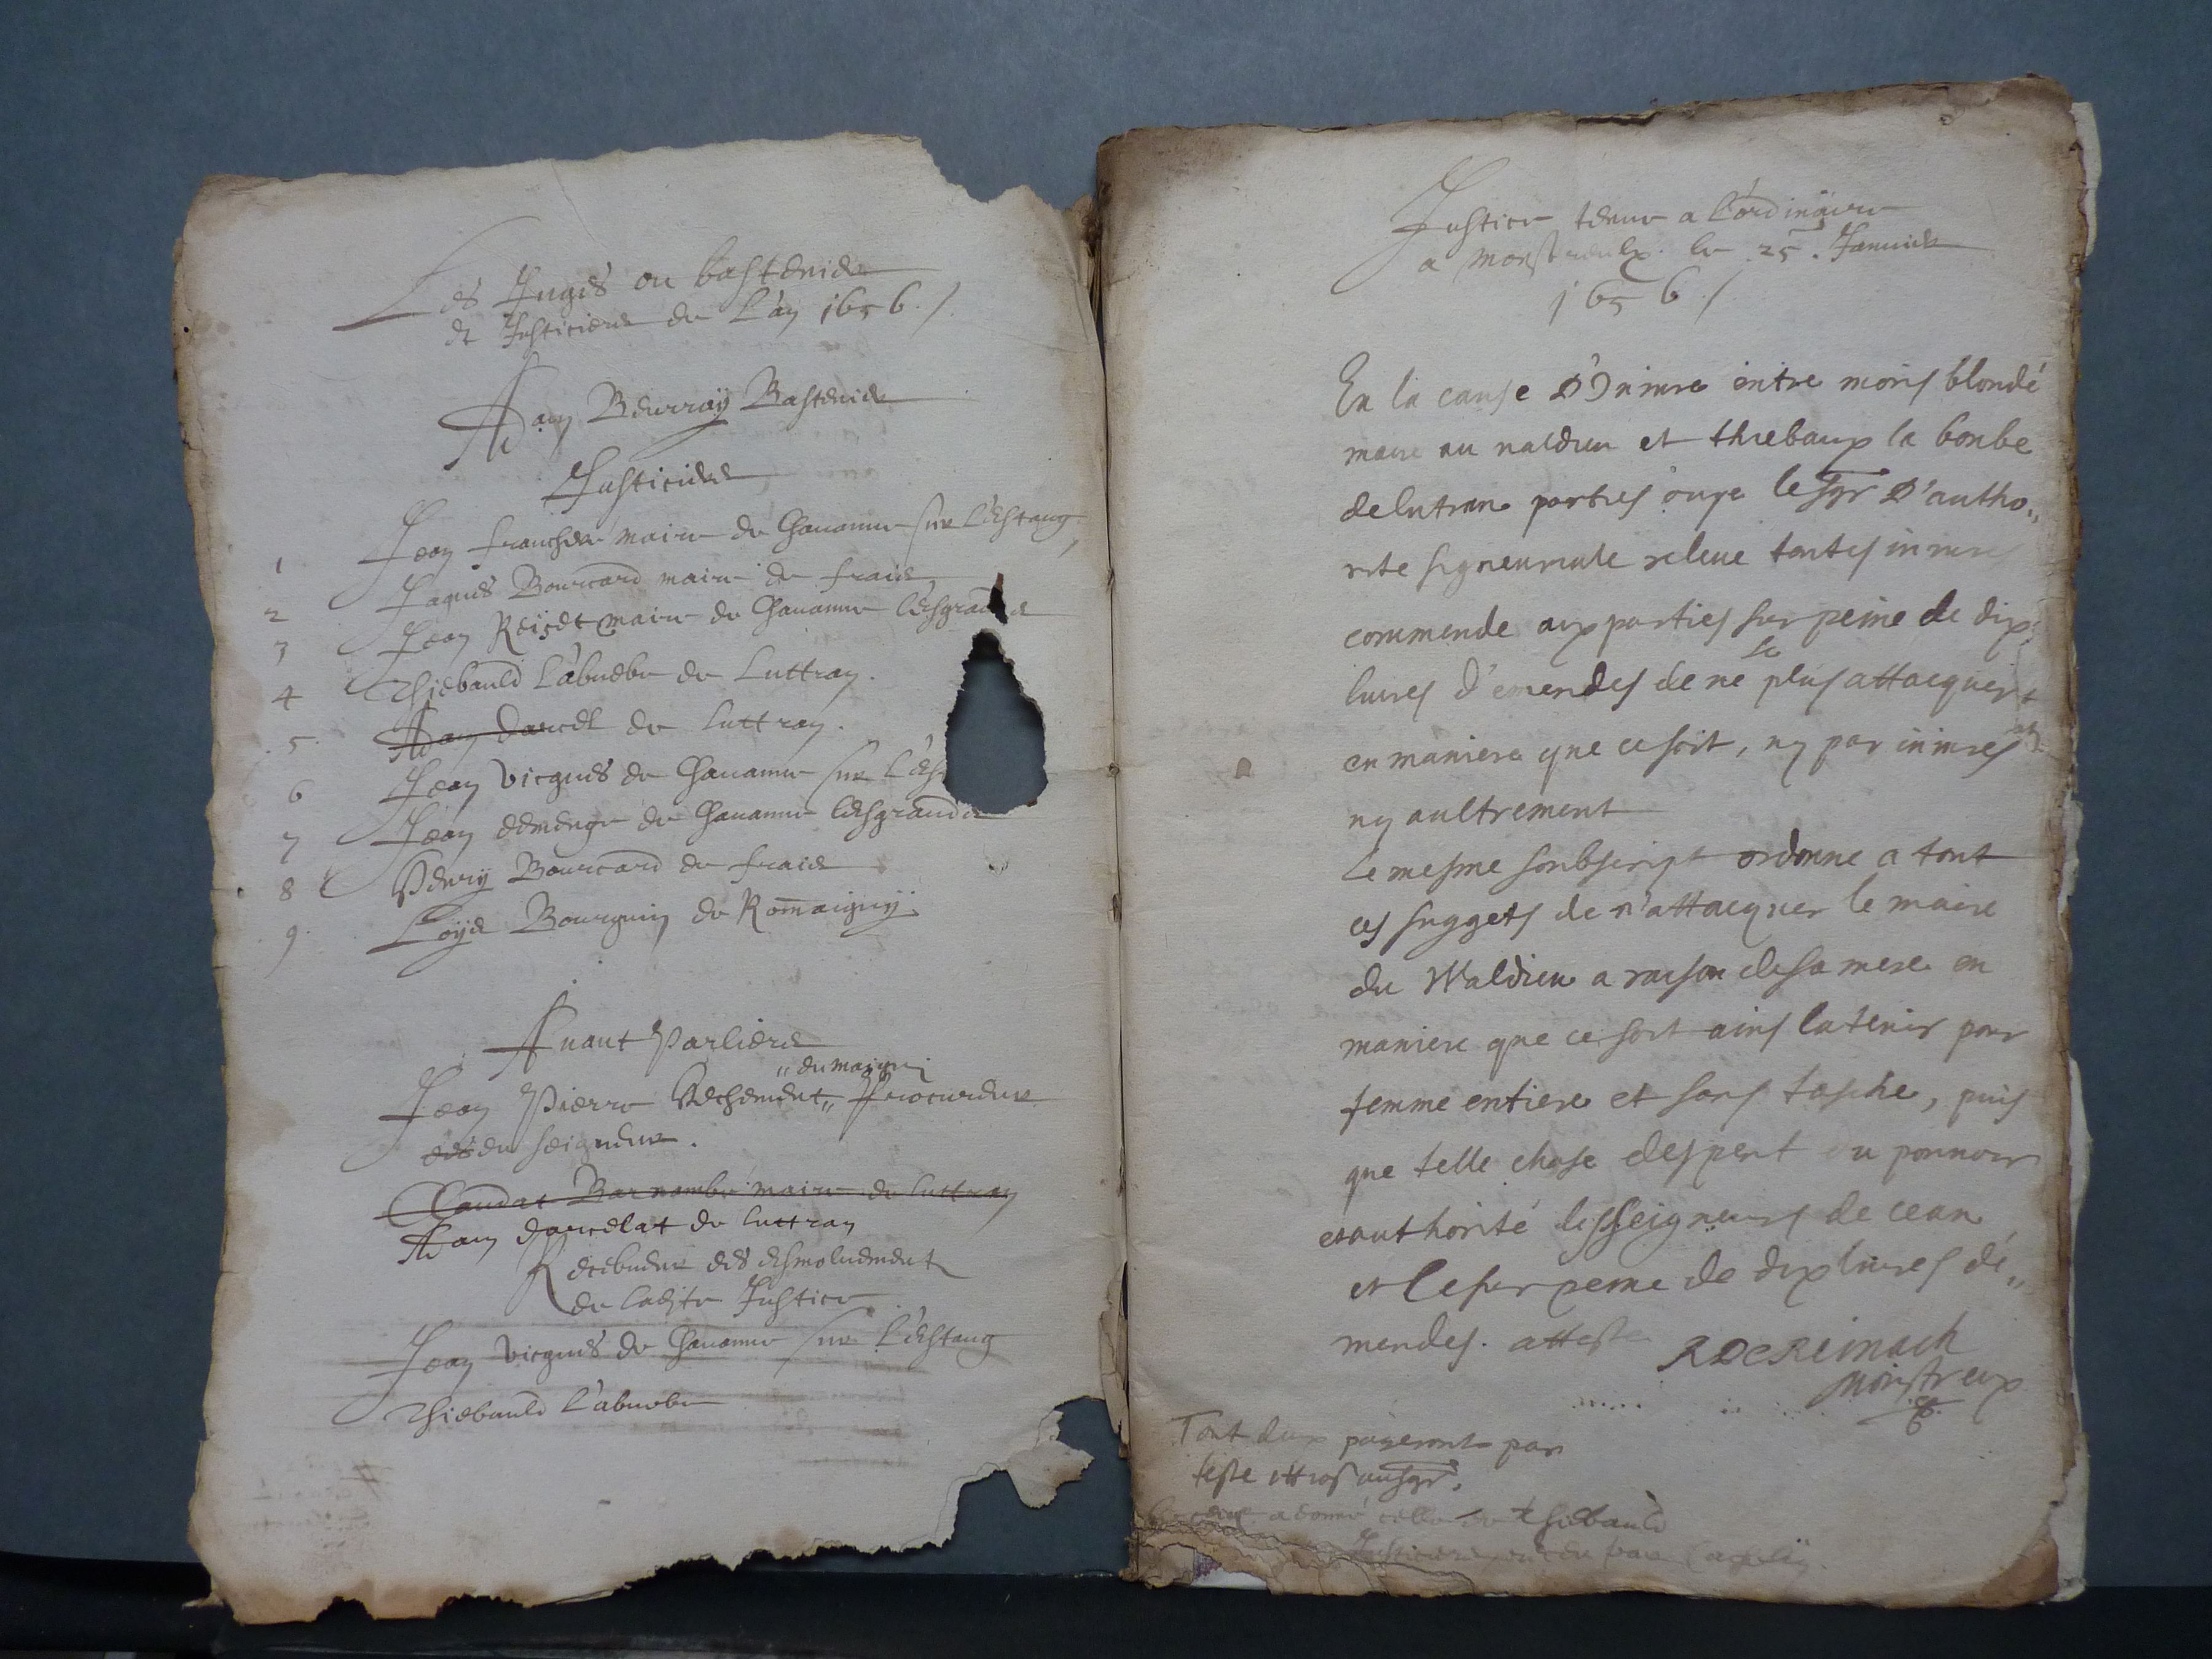 Les Juges ou bastenier
et Justiciers de L'an 1656 ./.
Adam Beurray Bastenier
Justiciers
1 Jean francher maire de Chauanne sur L'Estang
2 Jaques Bourcard maire de frais
3 Jean Reiset maire de Chauanne lesgrande
4 Thiebauld L'abuebe de Luttran.
5. Adam darcel de Luttran.
6 Jean vicques de Chauanne sur L'Es
7 Jean demenge de Chauanne lesgrande
8 Henry Bourcard de frais
9. Loys Bourquin de Romaigny.
Auant Parliers
„ du maigni
Jean Pierre „ Procureur
des du seigneur.
Claudat Barnambé maire de luttran
Adam darcelat de luttran
Recebueur des esmoluement
de ladite Justice
Jean vicques de Chauanne sur L'Estang
Thiebauld L'abuebe
Justice tenue a L'ordinaire
a Monstreulx le 25. Januier
1656 ./
En la cause D'Iniure entre moris blondé
maire au valdieu et thiebaux la bonbe
delutrane parties ouye le sgr D'autho„
rite signeuriale releue toutes iniures
commende aux parties sur peine de dix
se
liures d'emendes de ne plus attacquer
en maniere que ce soit, ny par iniures
ny aultrement
Le mesme soubscript ordonne a tout
ces suggets de n'attacquer le maire
du Waldieu a raison de sa mere en
maniere que ce soit ains la tenir pour
femme entiere et sans tasche, puis
que telle chose despent du pouuoir
et authorité des seigneurs de cean
et ce sur peine de dix liures d'é„
mendes. atteste R De Reinach
Monstreux
Tout deux payeront par
teste au sgr.
a donné celle de thiebauld
Justiciers